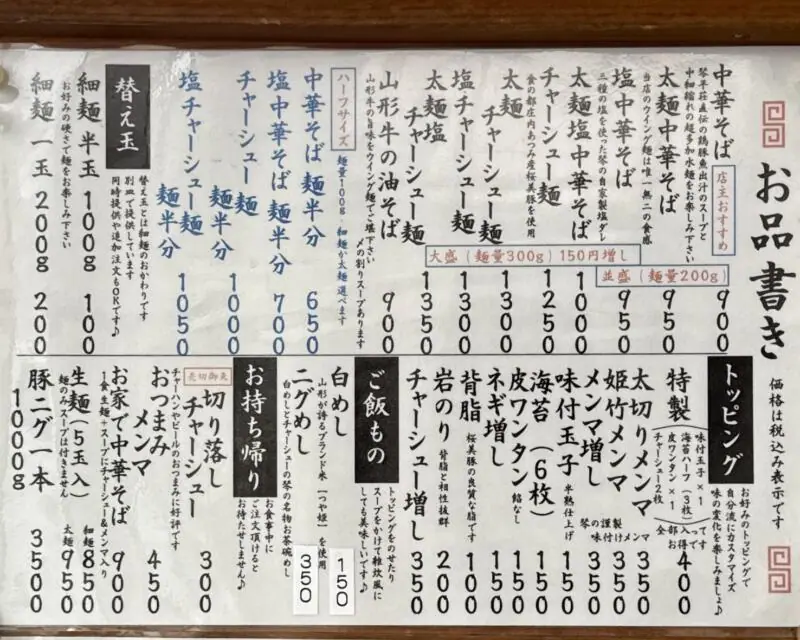 お品書き
価格は税込み表示です
中華そば
店主おすすめ
900
琴平荘直伝の鶏豚魚出汁のスープと
中細縮れの超多加水麺をお楽しみ下さい
太麺中華そば
950
当店のウイング麺は唯一無二の食感
塩中華そば
950
三種の塩を使った琴の自家製塩ダレ
太麺塩中華そば
1000
チャーシュー麺
1250
食の都庄内あつみ産桜美豚を使用
太麺
チャーシュー麺
1300
塩チャーシュー麺
1300
太麺塩
チャーシュー麺
1350
並盛(麺量200g)
大盛(麺量300g)150円増し
山形牛の油そば
900
山形牛の旨味をウイング麺でご堪下さい
〆の割りスープあります
ハーフサイズ
麺量100g・細麺か太麺選べます
中華そば 麺半分
650
塩中華そば 麺半分
700
チャーシュー麺
麺半分
1000
塩チャーシュー麺
麺半分
1050
替え玉
替え玉とは細麺のおかわりです
別皿で提供しています
同時提供や追加注文もOKです♪
細麺 半玉 100g 100
お好みの硬さで麺をお楽しみ下さい
細麺 一玉 200g 200
トッピング
お好みのトッピングで
自分流にカスタマイズ
味の変化を楽しみましょ♪
特製
味付玉子×1
海苔ハーフ(3枚)
皮ワンタン×1
チャーシュー2枚
全部入って
お得です
400
太切りメンマ
350
姫竹メンマ
350
琴の謹製
味付けメンマ
メンマ増し
350
味付玉子
半熟仕上げ
150
海苔(6枚)
150
皮ワンタン
餡なし
150
ネギ増し
150
背脂
桜美豚の良質な脂です
100
岩のり
背脂と相性抜群
200
チャーシュー増し
350
ご飯もの
トッピングをのせたり
スープをかけて雑炊風に
しても美味しい♪
白めし
150
山形が誇るブランド米「つや姫」を使用
ニグめし
350
白めしとチャーシューの琴の名物お茶碗めし
お持ち帰り
お食事中に
ご注文頂けると
お待たせしません♪
売切御免
切り落し
チャーシュー
300
チャーハンやビールのおつまみに好評です
おつまみ
メンマ
450
お家で中華そば
900
1食生麺+スープにチャーシュー&メンマ入り
生麺(5玉入)
細麺850
太麺950
麺のみスープは付きません
豚ニグ一本
1000g
3500